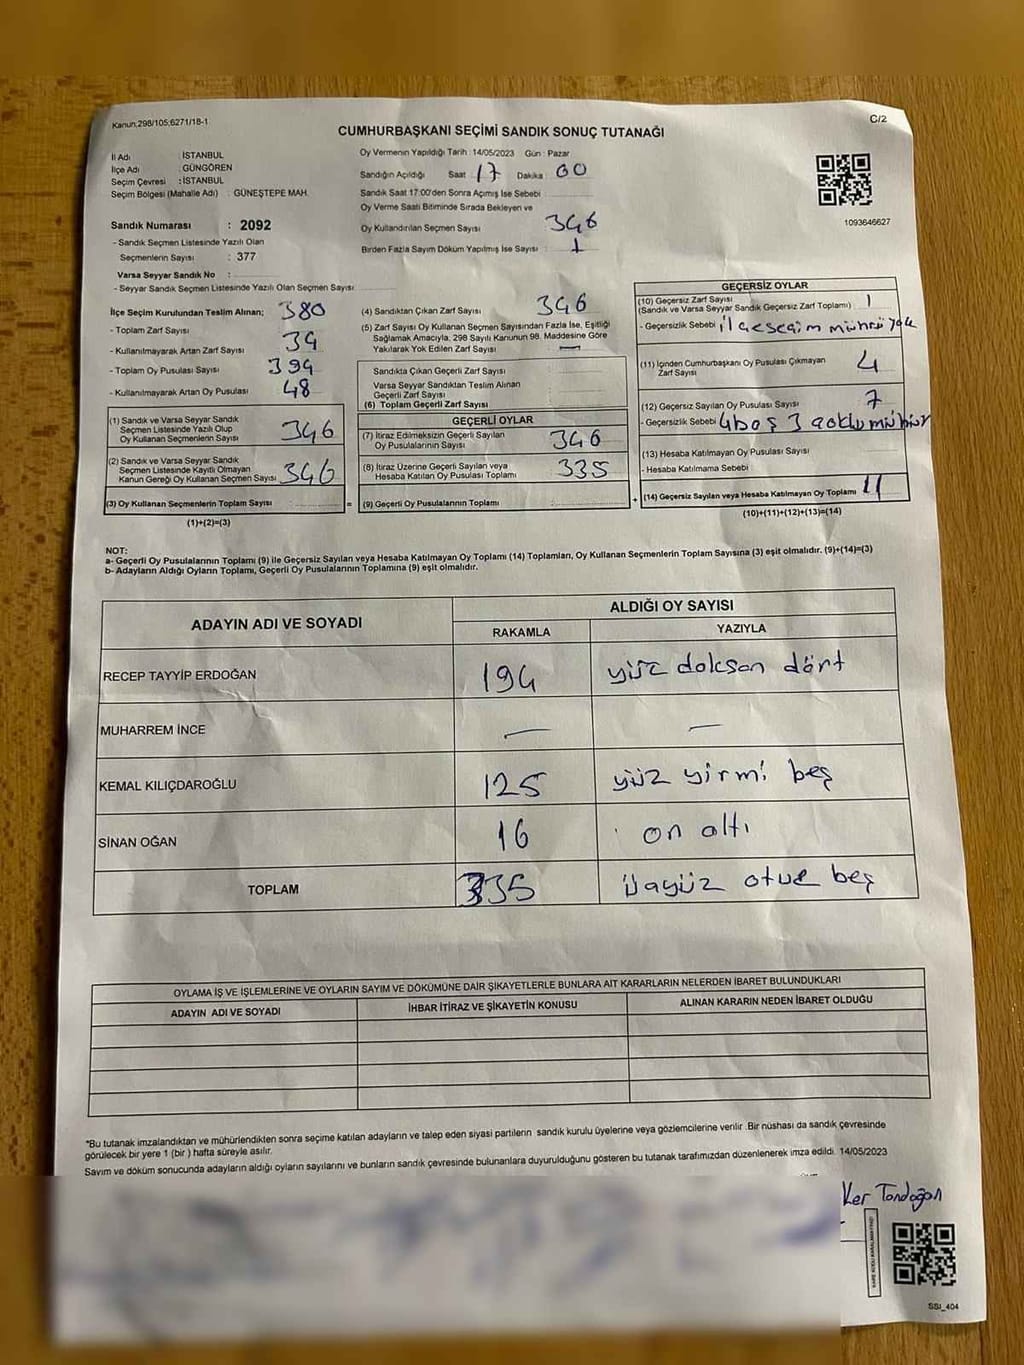 Kanun:298/105;6271/18-1
C/2
CUMHURBAŞKANI SEÇİMİ SANDIK SONUÇ TUTANAĞI
İl Adı : İSTANBUL
İlçe Adı : GÜNGÖREN
Seçim Çevresi : İSTANBUL
Seçim Bölgesi (Mahalle Adı) : GÜNEŞTEPE MAH.
Sandık Numarası : 2092
- Sandık Seçmen Listesinde Yazılı Olan
Seçmenlerin Sayısı : 377
Varsa Seyyar Sandık No :
- Seyyar Sandık Seçmen Listesinde Yazılı Olan Seçmen Sayısı
Oy Vermenin Yapıldığı Tarih : 14/05/2023 Gün : Pazar
Sandığın Açıldığı Saat 17 Dakika 00
Sandık Saat 17:00'den Sonra Açımış İse Sebebi
Oy Verme Saati Bitiminde Sırada Bekleyen ve
Oy Kullandırılan Seçmen Sayısı 346
Birden Fazla Sayım Döküm Yapılmış İse Sayısı : 1
1093646627
İlçe Seçim Kurulundan Teslim Alınan; 380
- Toplam Zarf Sayısı
- Kullanılmayarak Artan Zarf Sayısı 34
- Toplam Oy Pusulası Sayısı 394
- Kullanılmayarak Artan Oy Pusulası 48
(1) Sandık ve Varsa Seyyar Sandık
Seçmen Listesinde Yazılı Olup
Oy Kullanan Seçmenlerin Sayısı 346
(2) Sandık ve Varsa Seyyar Sandık
Seçmen Listesinde Kayıtlı Olmayan
Kanun Gereği Oy Kullanan Seçmen Sayısı 346
(3) Oy Kullanan Seçmenlerin Toplam Sayısı
(1)+(2)=(3)
(4) Sandıktan Çıkan Zarf Sayısı 346
(5) Zarf Sayısı Oy Kullanan Seçmen Sayısından Fazla İse, Eşitliği
Sağlamak Amacıyla, 298 Sayılı Kanunun 98. Maddesine Göre
Yakılarak Yok Edilen Zarf Sayısı —
Sandıkta Çıkan Geçerli Zarf Sayısı
Varsa Seyyar Sandıktan Teslim Alınan
Geçerli Zarf Sayısı
(6) Toplam Geçerli Zarf Sayısı
GEÇERLİ OYLAR
(7) İtiraz Edilmeksizin Geçerli Sayılan
Oy Pusulalarının Sayısı 346
(8) İtiraz Üzerine Geçerli Sayılan veya
Hesaba Katılan Oy Pusulası Toplamı 335
= (9) Geçerli Oy Pusulalarının Toplamı
GEÇERSİZ OYLAR
(10) Geçersiz Zarf Sayısı
(Sandık ve Varsa Seyyar Sandık Geçersiz Zarf Toplamı) 1
- Geçersizlik Sebebi ilçe seçim mührü yok
(11) İçinden Cumhurbaşkanı Oy Pusulası Çıkmayan
Zarf Sayısı 4
(12) Geçersiz Sayılan Oy Pusulası Sayısı 7
- Geçersizlik Sebebi 4 boş 3 çoklu mühür
(13) Hesaba Katılmayan Oy Pusulası Sayısı
- Hesaba Katılmama Sebebi
+ (14) Geçersiz Sayılan veya Hesaba Katılmayan Oy Toplamı 11
(10)+(11)+(12)+(13)=(14)
NOT:
a- Geçerli Oy Pusulalarının Toplamı (9) ile Geçersiz Sayılan veya Hesaba Katılmayan Oy Toplamı (14) Toplamları, Oy Kullanan Seçmenlerin Toplam Sayısına (3) eşit olmalıdır. (9)+(14)=(3)
b- Adayların Aldığı Oyların Toplamı, Geçerli Oy Pusulalarının Toplamına (9) eşit olmalıdır.
ADAYIN ADI VE SOYADI
ALDIĞI OY SAYISI
RAKAMLA YAZIYLA
RECEP TAYYİP ERDOĞAN 194 yüz doksan dört
MUHARREM İNCE — —
KEMAL KILIÇDAROĞLU 125 yüz yirmi beş
SİNAN OĞAN 16 on altı
TOPLAM 335 üçyüz otuz beş
OYLAMA İŞ VE İŞLEMLERİNE VE OYLARIN SAYIM VE DÖKÜMÜNE DAİR ŞİKAYETLERLE BUNLARA AİT KARARLARIN NELERDEN İBARET BULUNDUKLARI
ADAYIN ADI VE SOYADI İHBAR İTİRAZ VE ŞİKAYETİN KONUSU ALINAN KARARIN NEDEN İBARET OLDUĞU
*Bu tutanak imzalandıktan ve mühürlendikten sonra seçime katılan adayların ve talep eden siyasi partilerin sandık kurulu üyelerine veya gözlemcilerine verilir .Bir nüshası da sandık çevresinde
görülecek bir yere 1 (bir ) hafta süreyle asılır.
Sayım ve döküm sonucunda adayların aldığı oyların sayılarını ve bunların sandık çevresinde bulunanlara duyurulduğunu gösteren bu tutanak tarafımızdan düzenlenerek imza edildi. 14/05/2023
Tandoğan
KARE KODU KARALMAYINIZ!
SSI_404